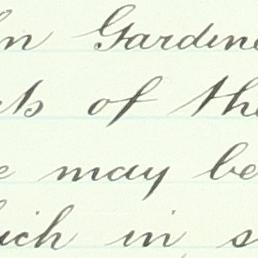 in Gardine
ts of the
e may be
ich in s